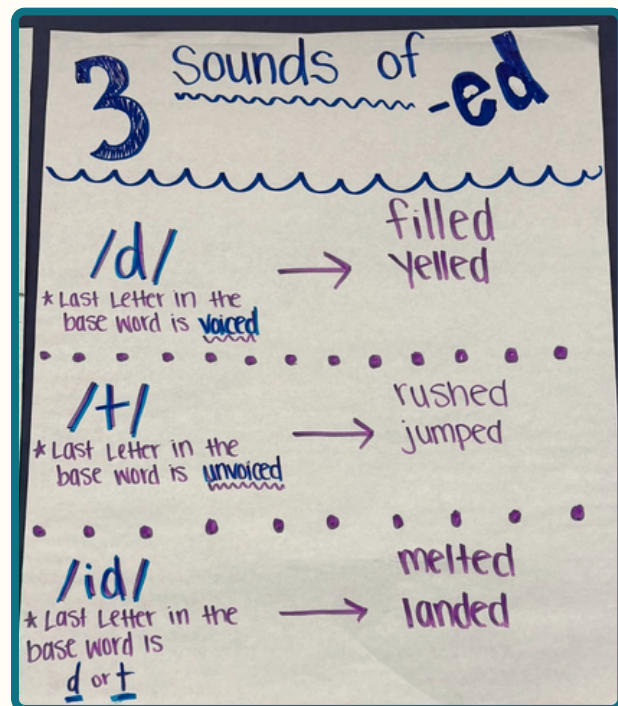 3 Sounds of -ed
/d/
*Last Letter in the
base word is voiced
filled
yelled
/t/
*Last Letter in the
base word is unvoiced
rushed
jumped
/id/
*Last Letter in the
base word is
d or t
melted
landed